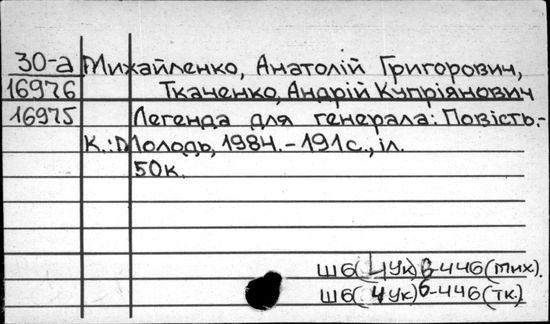 30-а Михайленко, Анатолій Григорович,
16976 Ткаченко, Андрій Купріянович
16975 Легенда для генерала: Повість.-
К.: Молодь, 1984.-191с., іл.
50к.
Ш6(4Ук)6-446(Мих).
Ш6(4Ук)6-446(тк.)